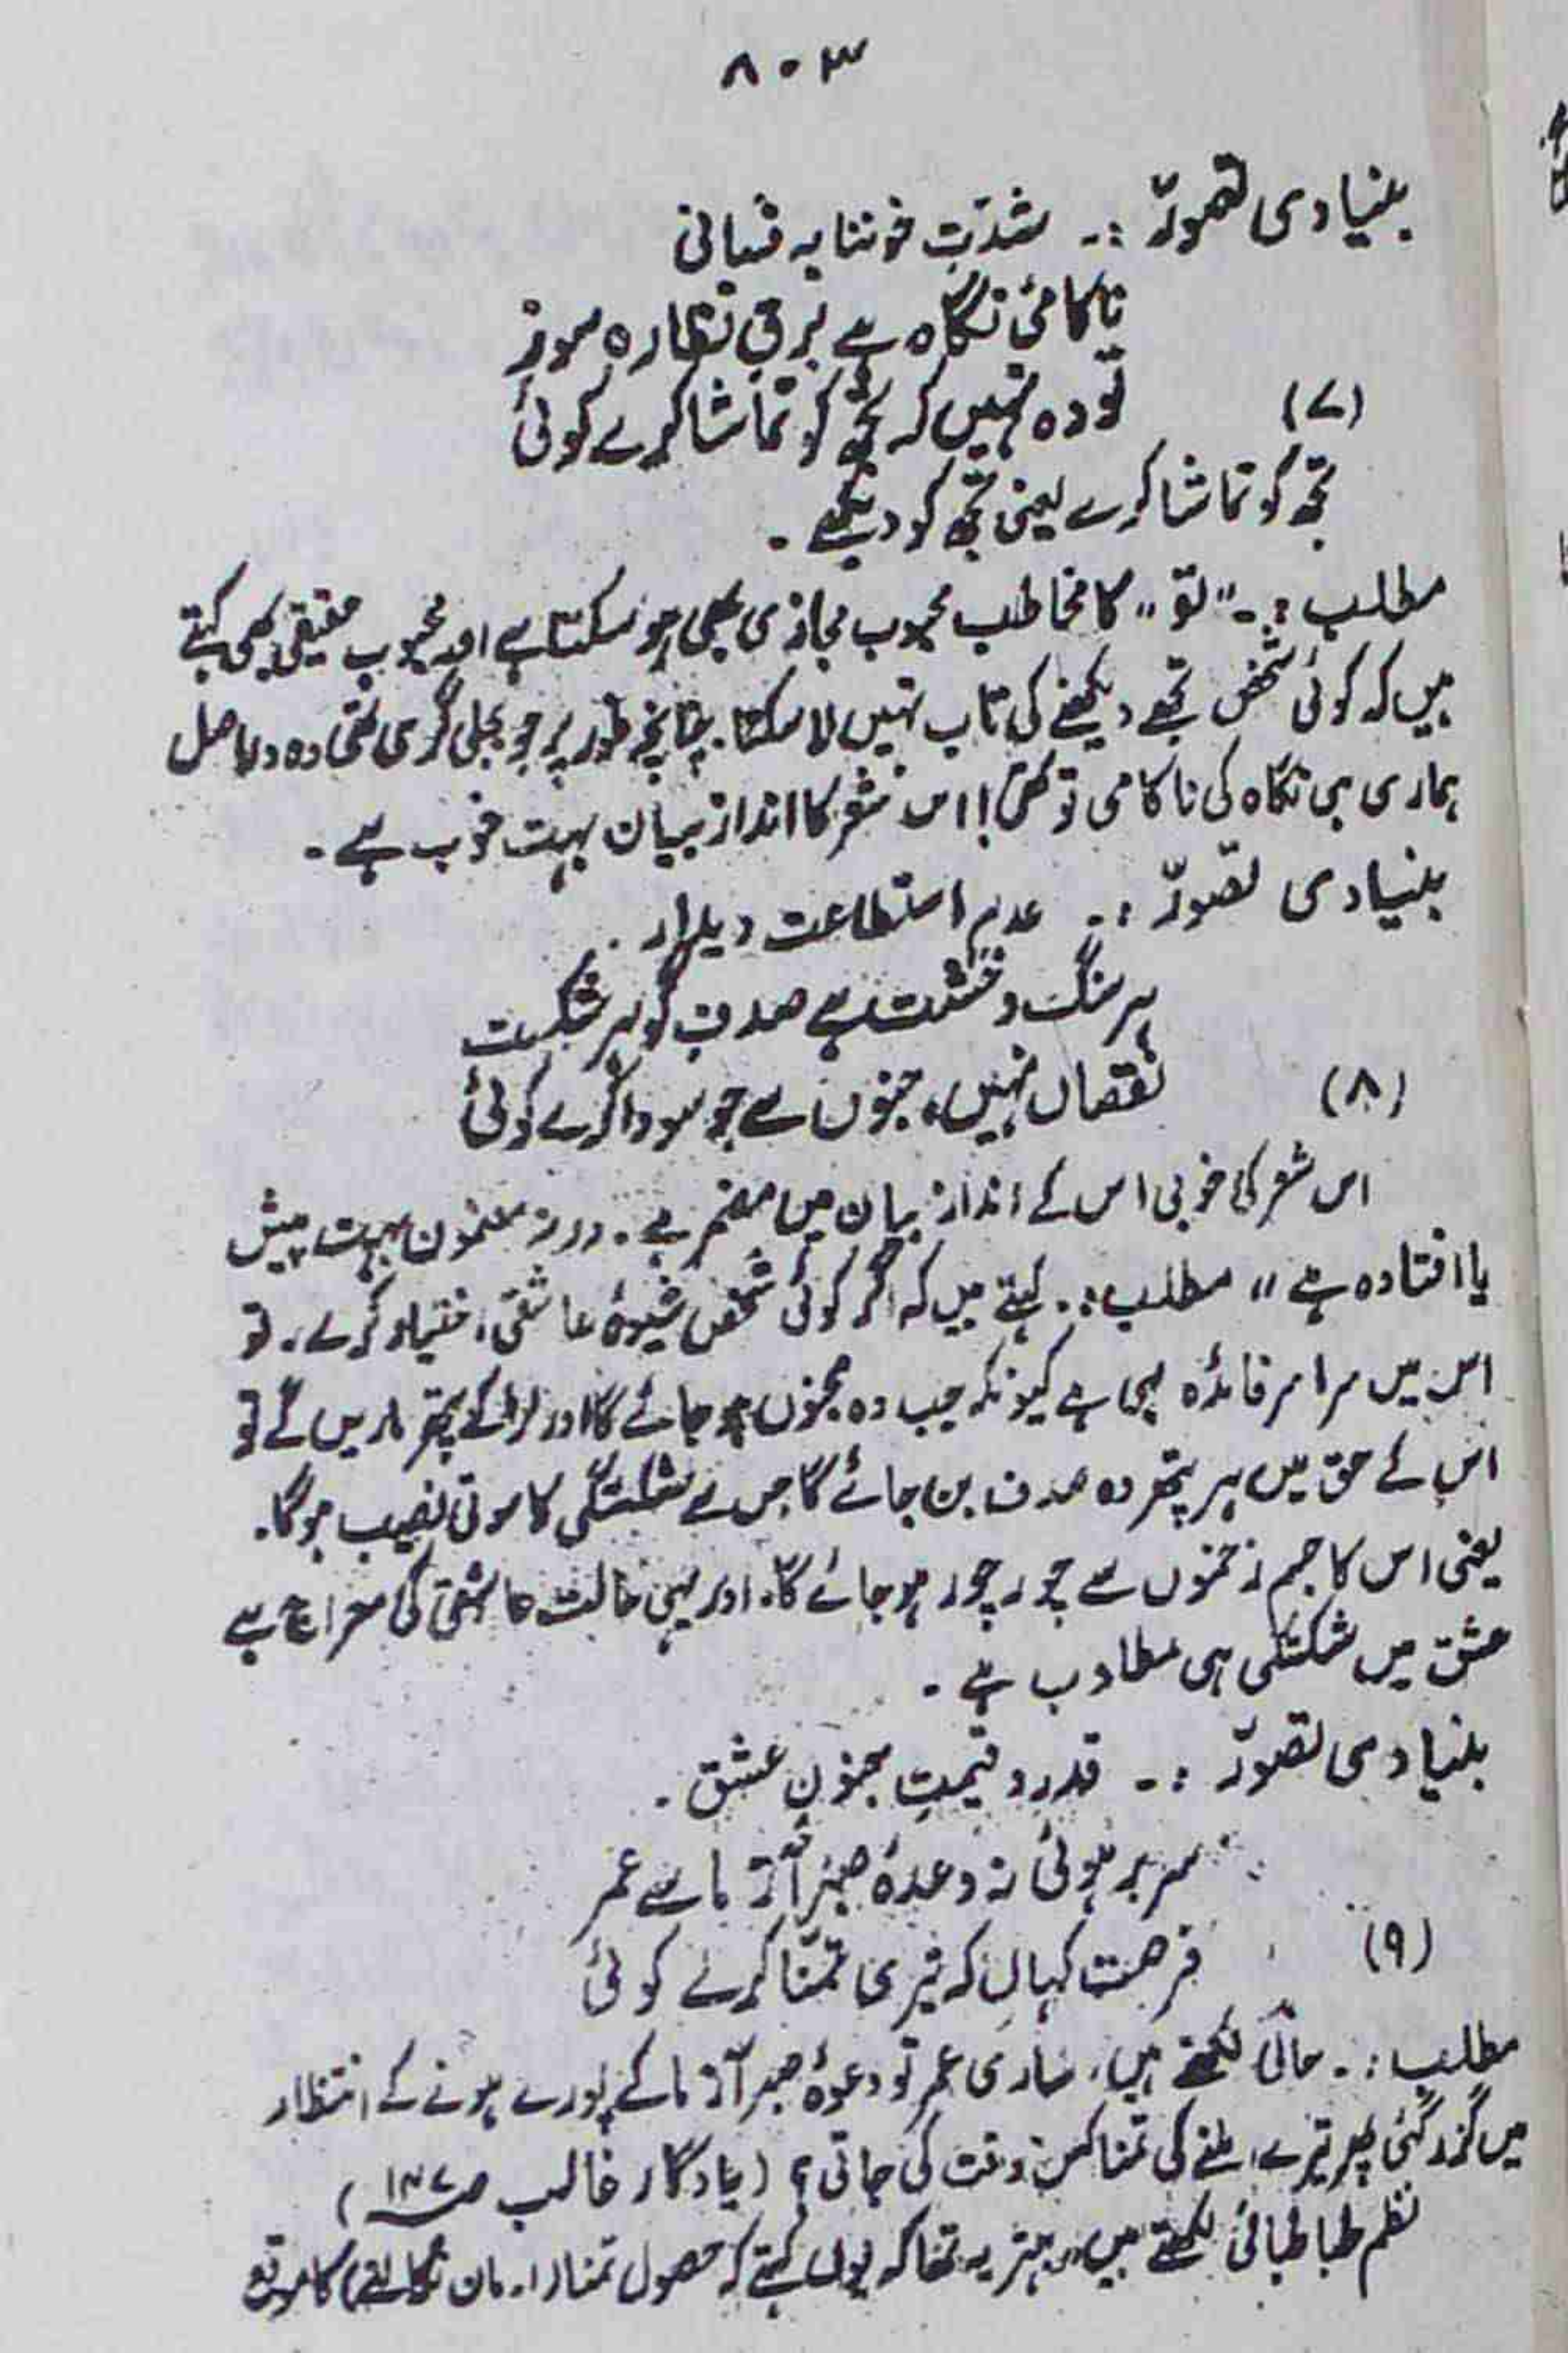 ۸۰۳
بنیادی تصورّ :۔ شدّتِ خوننابہ فشانی
ناکامیٔ نگاہ ہے برقِ نظارہ سوز
(۷) تُو وہ نہیں کہ تجھ کو تماشا کرے کوئی
تجھ کو تماشا کرے یعنی تجھ کو دیکھے ۔
مطلب :۔ "تو" کا مخاطب محبوب مجازی بھی ہو سکتا ہے اور محبوب حقیقی بھی کہتے
ہیں کہ کوئی شخص تجھے دیکھنے کی تاب نہیں لا سکتا۔ چنانچہ طور پر جو بجلی گری تھی وہ دراصل
ہماری ہی نگاہ کی ناکامی تو تھی! اس شعر کا انداز بیان بہت خوب ہے ۔
بنیادی تصورّ :۔ عدم استطاعت دیدار .
ہر سنگ و خشت ہے صدفِ گوہرِ شکست
(۸) نقصاں نہیں، جنوں سے جو سودا کرے کوئی
اس شعر کی خوبی اس کے انداز بیان میں مضمر ہے۔ ورنہ مضمون بہت پیش
یا افتادہ ہے " مطلب :۔ کہتے ہیں کہ اگر کوئی شخص شیوۂ عاشقی اختیار کرے، تو
اس میں سراسر فائدہ ہی ہے کیونکہ جب وہ مجنوں ہو جائے گا اور لڑکے پتھر ماریں گے تو
اس کے حق میں ہر پتھر وہ صدف بن جائے گا جس سے شکستگی کا موتی نصیب ہوگا۔
یعنی اس کا جسم زخموں سے چور چور ہو جائے گا۔ اور یہی حالت عاشقی کی معراج ہے
عشق میں شکستگی ہی مطلوب ہے ۔
بنیادی تصورّ :۔ قدر و قیمتِ جنونِ عشق .
سر بر ہوئی نہ وعدۂ صبر آزما سے عمر
(۹) فرصت کہاں کہ تیری تمنّا کرے کوئی
مطلب :۔ حالی لکھتے ہیں، ساری عمر تو وعدۂ صبر آزما کے پورے ہونے کے انتظار
میں گزر گئی پھر تیرے ملنے کی تمنا کس وقت کی جاتی؟ (یادگار غالب صـ ۱۴۷)
نظم طباطبائی لکھتے ہیں "بہتر یہ تھا کہ یوں کہتے کہ حصول تمنا (ارمان نکالنے) کا موقع